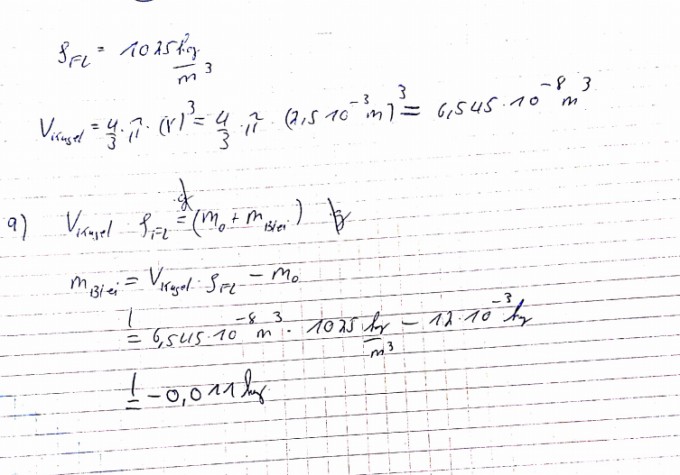 ρFL = 1025 kg/m³
VKugel = 4/3 · π · (r)³ = 4/3 · π · (2,5 10⁻³ m)³ = 6,545 · 10⁻⁸ m³
a) VKugel · ρFL · g = (m₀ + mBlei) g
mBlei = VKugel · ρFL − m₀
= 6,545 · 10⁻⁸ m³ · 1025 kg/m³ − 12 · 10⁻³ kg
= −0,011 kg